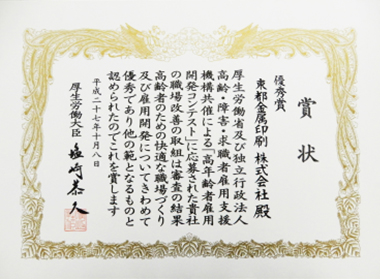 賞状
優秀賞
東都金属印刷 株式会社 殿
厚生労働省及び独立行政法人
高齢・障害・求職者雇用支援
機構共催による「高年齢者雇用
開発コンテスト」に応募された貴社
の職場改善の取組は審査の結果
高齢者のための快適な職場づくり
及び雇用開発についてきわめて
優秀であり他の範となるものと
認められたのでこれを賞します
平成二十七年十月八日
厚生労働大臣 塩崎恭久